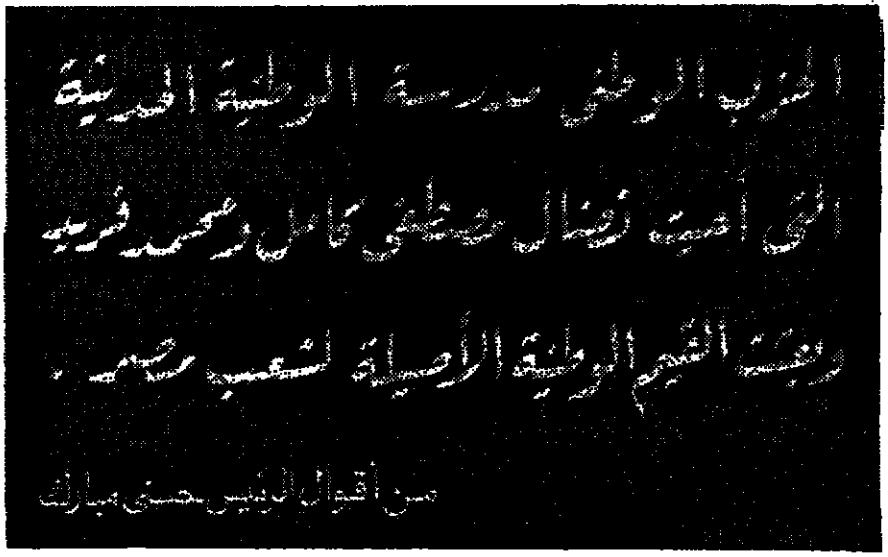 الحزب الوطنى مدرسة الوطنية الحديثة
التى أحيت نضال مصطفى كامل ومحمد فريد
وبعثت القيم الوطنية الأصيلة لشعب مصر .
من أقوال الرئيس حسنى مبارك